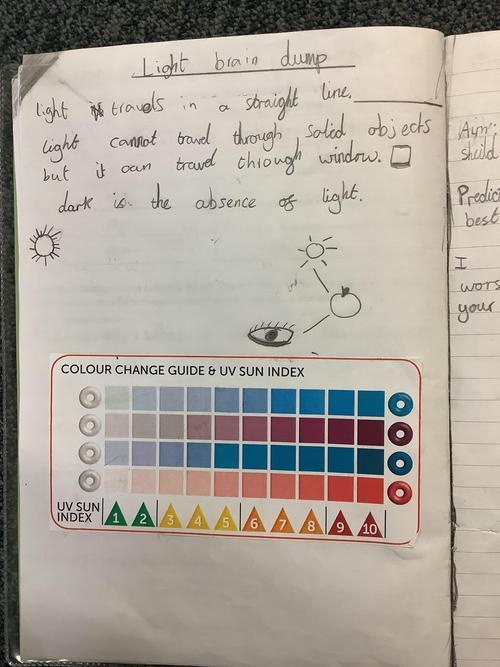 Light brain dump
light travels in a straight line.
light cannot travel through solid objects
but it can travel through window.
dark is the absence of light.
COLOUR CHANGE GUIDE & UV SUN INDEX
UV SUN
INDEX
1 2 3 4 5 6 7 8 9 10
Aim:
sheild
Predic
best
I
wors
your